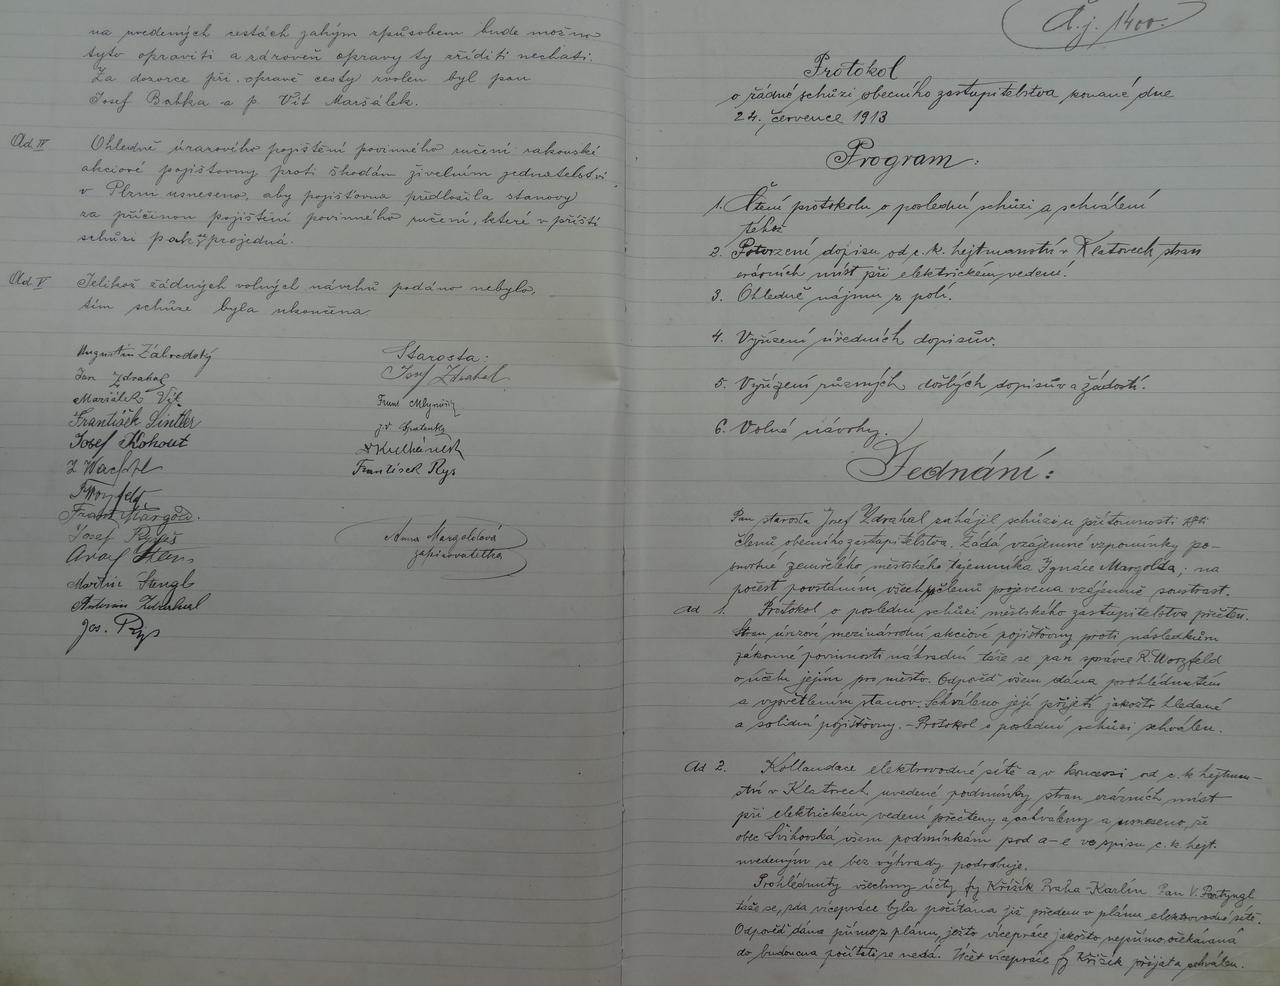 na uvedených cestách jakým způsobem bude možno
tyto opraviti a zároveň opravy ty zříditi nechati.
Za dozorce při opravě cesty zvolen byl pan
Josef Babka a p. Vít Maršálek.
Ad IV Ohledně úrazového pojištění povinného ručení rakouské
akciové pojišťovny proti škodám živelním jednatelství
v Plzni usneseno, aby pojišťovna předložila stanovy
za příčinou pojištění povinného ručení, které v příští
schůzi pak se projedná.
Ad V Jelikož žádných volných návrhů podáno nebylo,
tím schůze byla ukončena.
Augustin Záhrodský
Jan Zdrahal
Maršálek Vít
František Sintler
Josef Kohout
J. Wachtl
R Worzfeld
Frant Margold.
Josef
Adolf
Martin Stengl
Antonín Zdrahal
Jos. Rys
Starosta:
Josef Zdrahal
Frant Mlynařík
Kulhánek
František Rys
Anna Margoldová
zapisovatelka
Č.j. 1400.
Protokol
o řádné schůzi obecního zastupitelstva konané dne
24. července 1913
Program:
1. Čtení protokolu o poslední schůzi a schválení
téhož
2. Potvrzení dopisu od c. k. hejtmanství v Klatovech stran
erárních míst při elektrickém vedení.
3. Ohledně nájmu z polí.
4. Vyřízení úředních dopisův.
5. Vyřízení různých došlých dopisův a žádostí.
6. Volné návrhy.
Jednání:
Pan starosta Josef Zdrahal zahájil schůzi u přítomnosti 18ti
členů obecního zastupitelstva. Žádá vzájemné vzpomínky po-
smrtné zemřelého městského tajemníka Ignáce Margolda; na
počest povstáním všech členů projevena vzájemně soustrast.
ad 1. Protokol o poslední schůzi městského zastupitelstva přečten.
Stran úrazové mezinárodní akciové pojišťovny proti následkům
zákonné povinnosti náhradní táže se pan správce R. Worzfeld
o účelu jejím pro město. Odpověď všem dána prohlédnutím
a vysvětlením stanov. Schváleno její přijetí jakožto hledané
a solidní pojišťovny. – Protokol o poslední schůzi schválen.
ad 2. Kollaudace elektrovodné sítě a v koncesi od c. k. hejtman-
ství v Klatovech uvedené podmínky stran erárních míst
při elektrickém vedení přečteny a schváleny a usneseno, že
obec Švihovská všem podmínkám pod a–e ve spisu c. k. hejt.
uvedeným se bez výhrady podrobuje.
Prohlédnuty všechny účty fy Křižík Praha-Karlín Pan V.
táže se, zda vícepráce byla počítána již předem v plánu elektrovodné sítě.
Odpověď dána přímo z plánu, ježto vícepráce jakožto nepřímo očekávaná
do budoucna počítati se nedá. Účet vícepráce fy Křižík přijat a schválen.